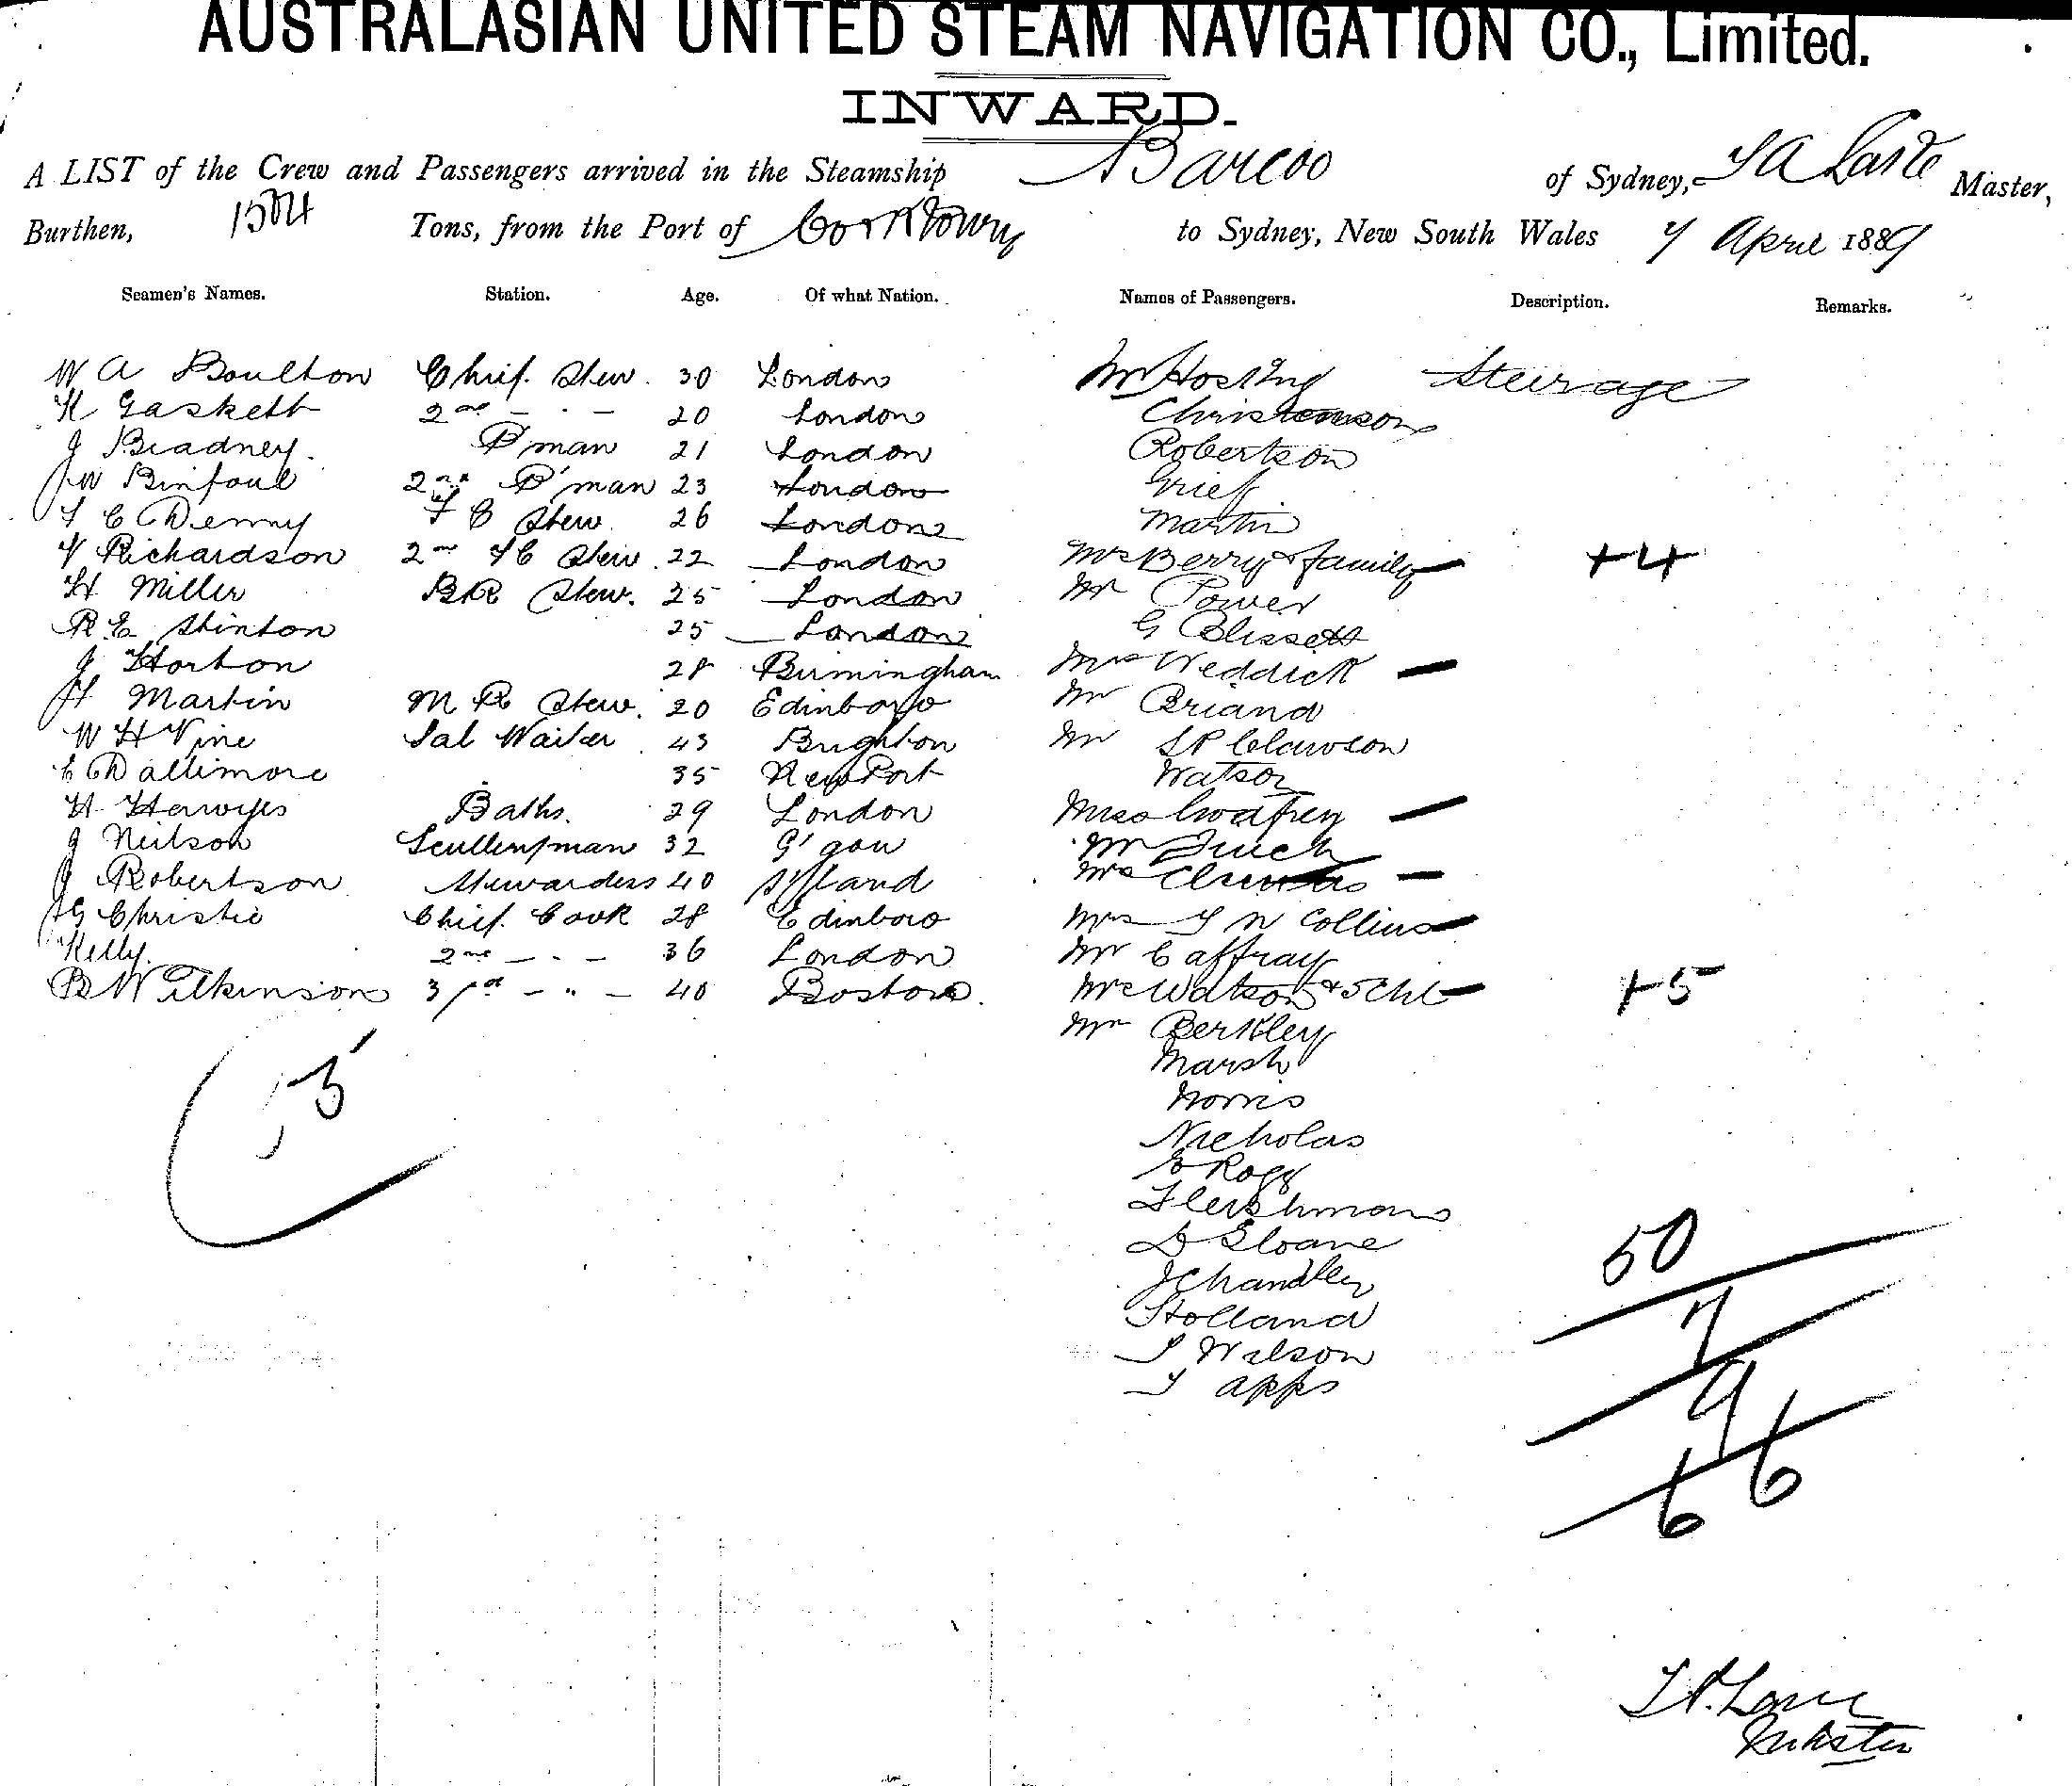 AUSTRALASIAN UNITED STEAM NAVIGATION CO., Limited.
INWARD.
A LIST of the Crew and Passengers arrived in the Steamship Barcoo of Sydney, Master,
Burthen, Tons, from the Port of Cooktown to Sydney, New South Wales 7 April 1889
Seamen's Names. Station. Age. Of what Nation. Names of Passengers. Description. Remarks.
W A Boulton Chief Stew. 30 London Mr Hosking Steerage
H Gaskett 2nd - " - 20 London Christenson
J Bradney. P'man 21 London Robertson
JW Binfoul 2nd P'man 23 London Grief
F C Denny F C Stew. 26 London Martin
V Richardson 2nd FC Stew. 22 London Mrs Berry & family - +4
H Miller BR Stew. 25 London Mr Power
R.E. Stinton 25 London G Blissett
J Horton 28 Birmingham Mrs Weddick -
H Martin M R Stew. 20 Edinboro Mr Briand
W H Vine Sal Waiter 43 Brighton Mr Clawson
E Dallimore 35 NewPort Watson
H Hawyes Baths. 29 London Miss Godfrey -
J Neilson Sculleryman 32 G'gow Mr Finch
J Robertson Stewardess 40 S'land Mrs -
JG Christie Chief Cook 28 Edinboro Mrs Collins -
Kelly. 2nd - " - 36 London Mr Caffray
B Wilkinson 3rd - " - 40 Boston. Mrs Watson & 5 Chl - +5
Mr Berkley
Marsh
Norris
Nicholas
Rogg
Flershman
D Sloane
J Chandler
Holland
S Wilson
T Apps
50
7
9
66